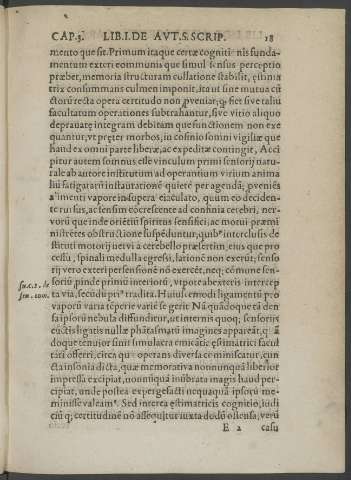 CAP.3. LIB.I.DE AVT.S.SCRIP. 18
mento que sit. Primum itaque certæ cognitiõnis funda-
mentum exteri communia que simul sensus perceptio
præbet, memoria structuram collatione stabilit, ęstima
trix consummans culmen imponit, ita ut sine mutua cũ
ctorũ recta opera certitudo non ꝓveniar; ꝙ siet sive taliũ
facultatum operationes subtrahantur, sive vitio aliquo
depravatę integram debitam que functionem non exe
quantur, vt pręter morbos, in cõfinio somni vigiliæ que
haud ex omni parte liberæ, ac expeditæ contingit, Acci
pitur autem somnus esse vinculum primi sensorij natu-
rale ab autore institutum ad operantium virium anima
liũ fatigatarũ instautationẽ quietẽ per agendã; ꝓveniẽs
alimenti vapore insuper a eiaculato, quum eo deciden-
te rursus, ac sensim cõcrescente ad confinia cerebri, ner-
vorũ que inde orientiũ spiritus sensifici, ac motui præmi
nistrẽtes obstructione suspẽduntur, quibꝰ interclusis de
stituti motorij nervi a cerebello præsertim, eius que pro
cessu, spinali medulla egressi, lationẽ non exerũt; senso
rij vero exteri persensionẽ nõ exercẽt, neqꝫ cõmune sen-
soriũ, pinde primũ interiorũ, vtpote abexteris intercep
ta via, secũdũ priꝰ tradita. Huiusemodi ligamentũ ꝓ
vaporũ varia tẽperie varie se gerit Nã quãdoque tã den
sa ipsorũ nebula diffunditur, ut internis quoqꝫ sensorijs
cũctis ligatis nullæ phãtasmatũ imagines appareãt, q ã
doque tenuior sunt simulacra emicãtia ęstimatrici facul
tati offerri, circa quę operans diversa cõminiscatur, cun
cta insonia dicta, quæ memorativa nonnunquã liberior
impressa excipiat, nonnũquã inũbrata imagis haud per-
cipiat, unde postea expergefacti nequaquã ipsorũ me
minisse valeamꝰ. Sed interea ęstimatricis cognitio, iudi
ciũ qꝫ certitudinẽ nõ assequitur iuxta dodũ ostensa, verũ
E 2 casu